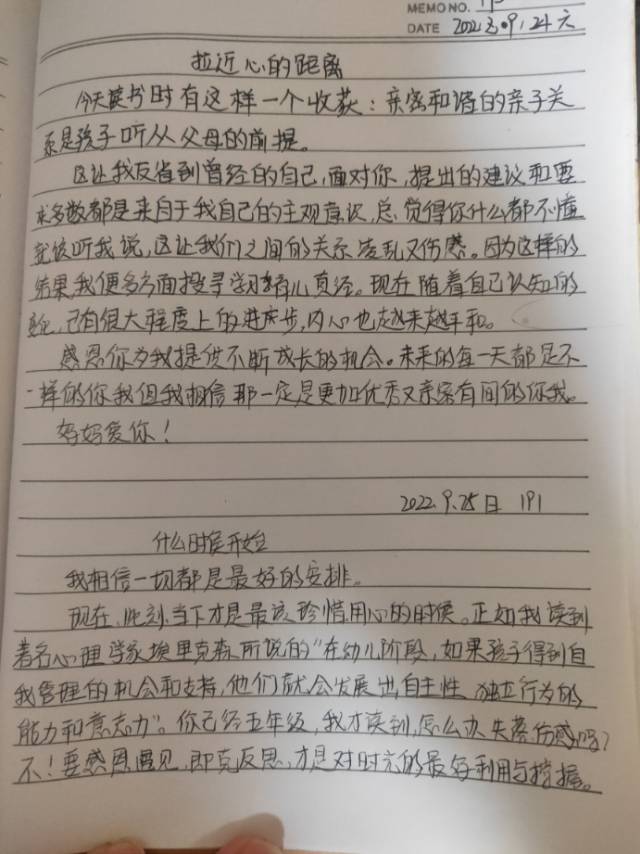 MEMO NO.
DATE 2022.9.24 六
拉近心的距离
今天读书时有这样一个收获：亲密和谐的亲子关
系是孩子听从父母的前提。
这让我反省到曾经的自己，面对你，提出的建议和要
求多数都是来自于我自己的主观意识，总觉得你什么都不懂
就该听我说，这让我们之间的关系凌乱又伤感。因为这样的
结果，我便多方面搜寻学习育儿真经。现在随着自己认知的
已有很大程度上的进步，内心也越来越平和。
感恩你为我提供不断成长的机会。未来的每一天都是不
一样的你我但我相信那一定是更加优秀又亲密有间的你我。
妈妈爱你！
2022.9.25日
什么时候开始
我相信一切都是最好的安排。
现在、此刻、当下才是最该珍惜用心的时候。正如我读到
著名心理学家埃里克森所说的“在幼儿阶段，如果孩子得到自
我管理的机会和支持，他们就会发展出自主性、独立行为的
能力和意志力”。你已经五年级，我才读到，怎么办失落伤感吗？
不！要感恩遇见，即克反思，才是对时光的最好利用与把握。